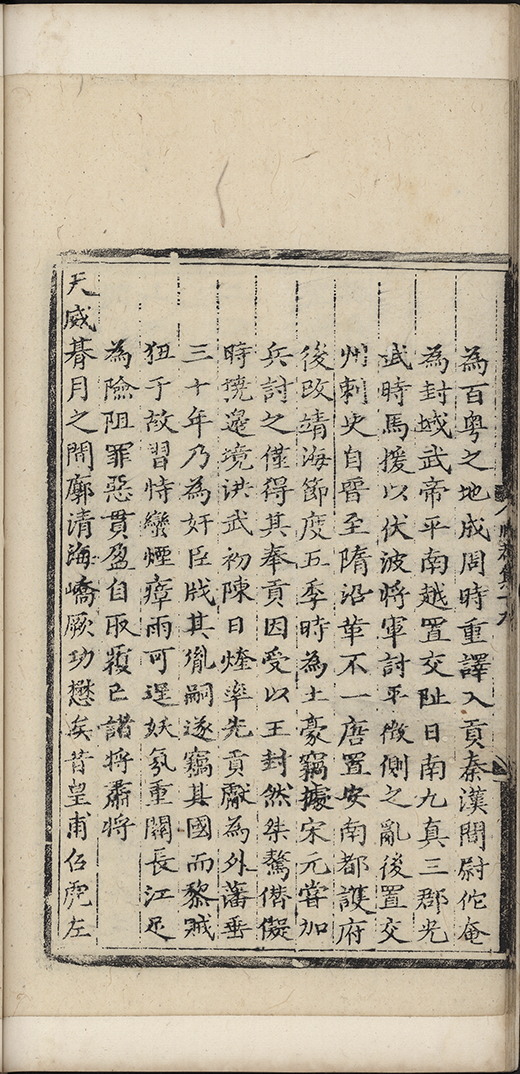 為百粤之地成周時重譯入貢秦漢間尉佗奄
為封域武帝平南越置交阯日南九真三郡光
武時馬援以伏波將軍討平徴側之亂後置交
州刺史自晋至隋沿革不一唐置安南都護府
後改靖海節度五季時為土豪竊據宋元嘗加
兵討之僅得其奉貢因受以王封然桀驁僣儗
時撓邉境洪武初陳日煃率先貢獻為外藩垂
三十年乃為奸臣戕其胤嗣遂竊其國而黎賊
狃于故習恃蠻煙瘴雨可逞妖氛重關長江足
為險阻罪惡貫盈自取覆亡諸將肅將
天威朞月之間廓清海嶠厥功懋矣昔皇甫召虎左